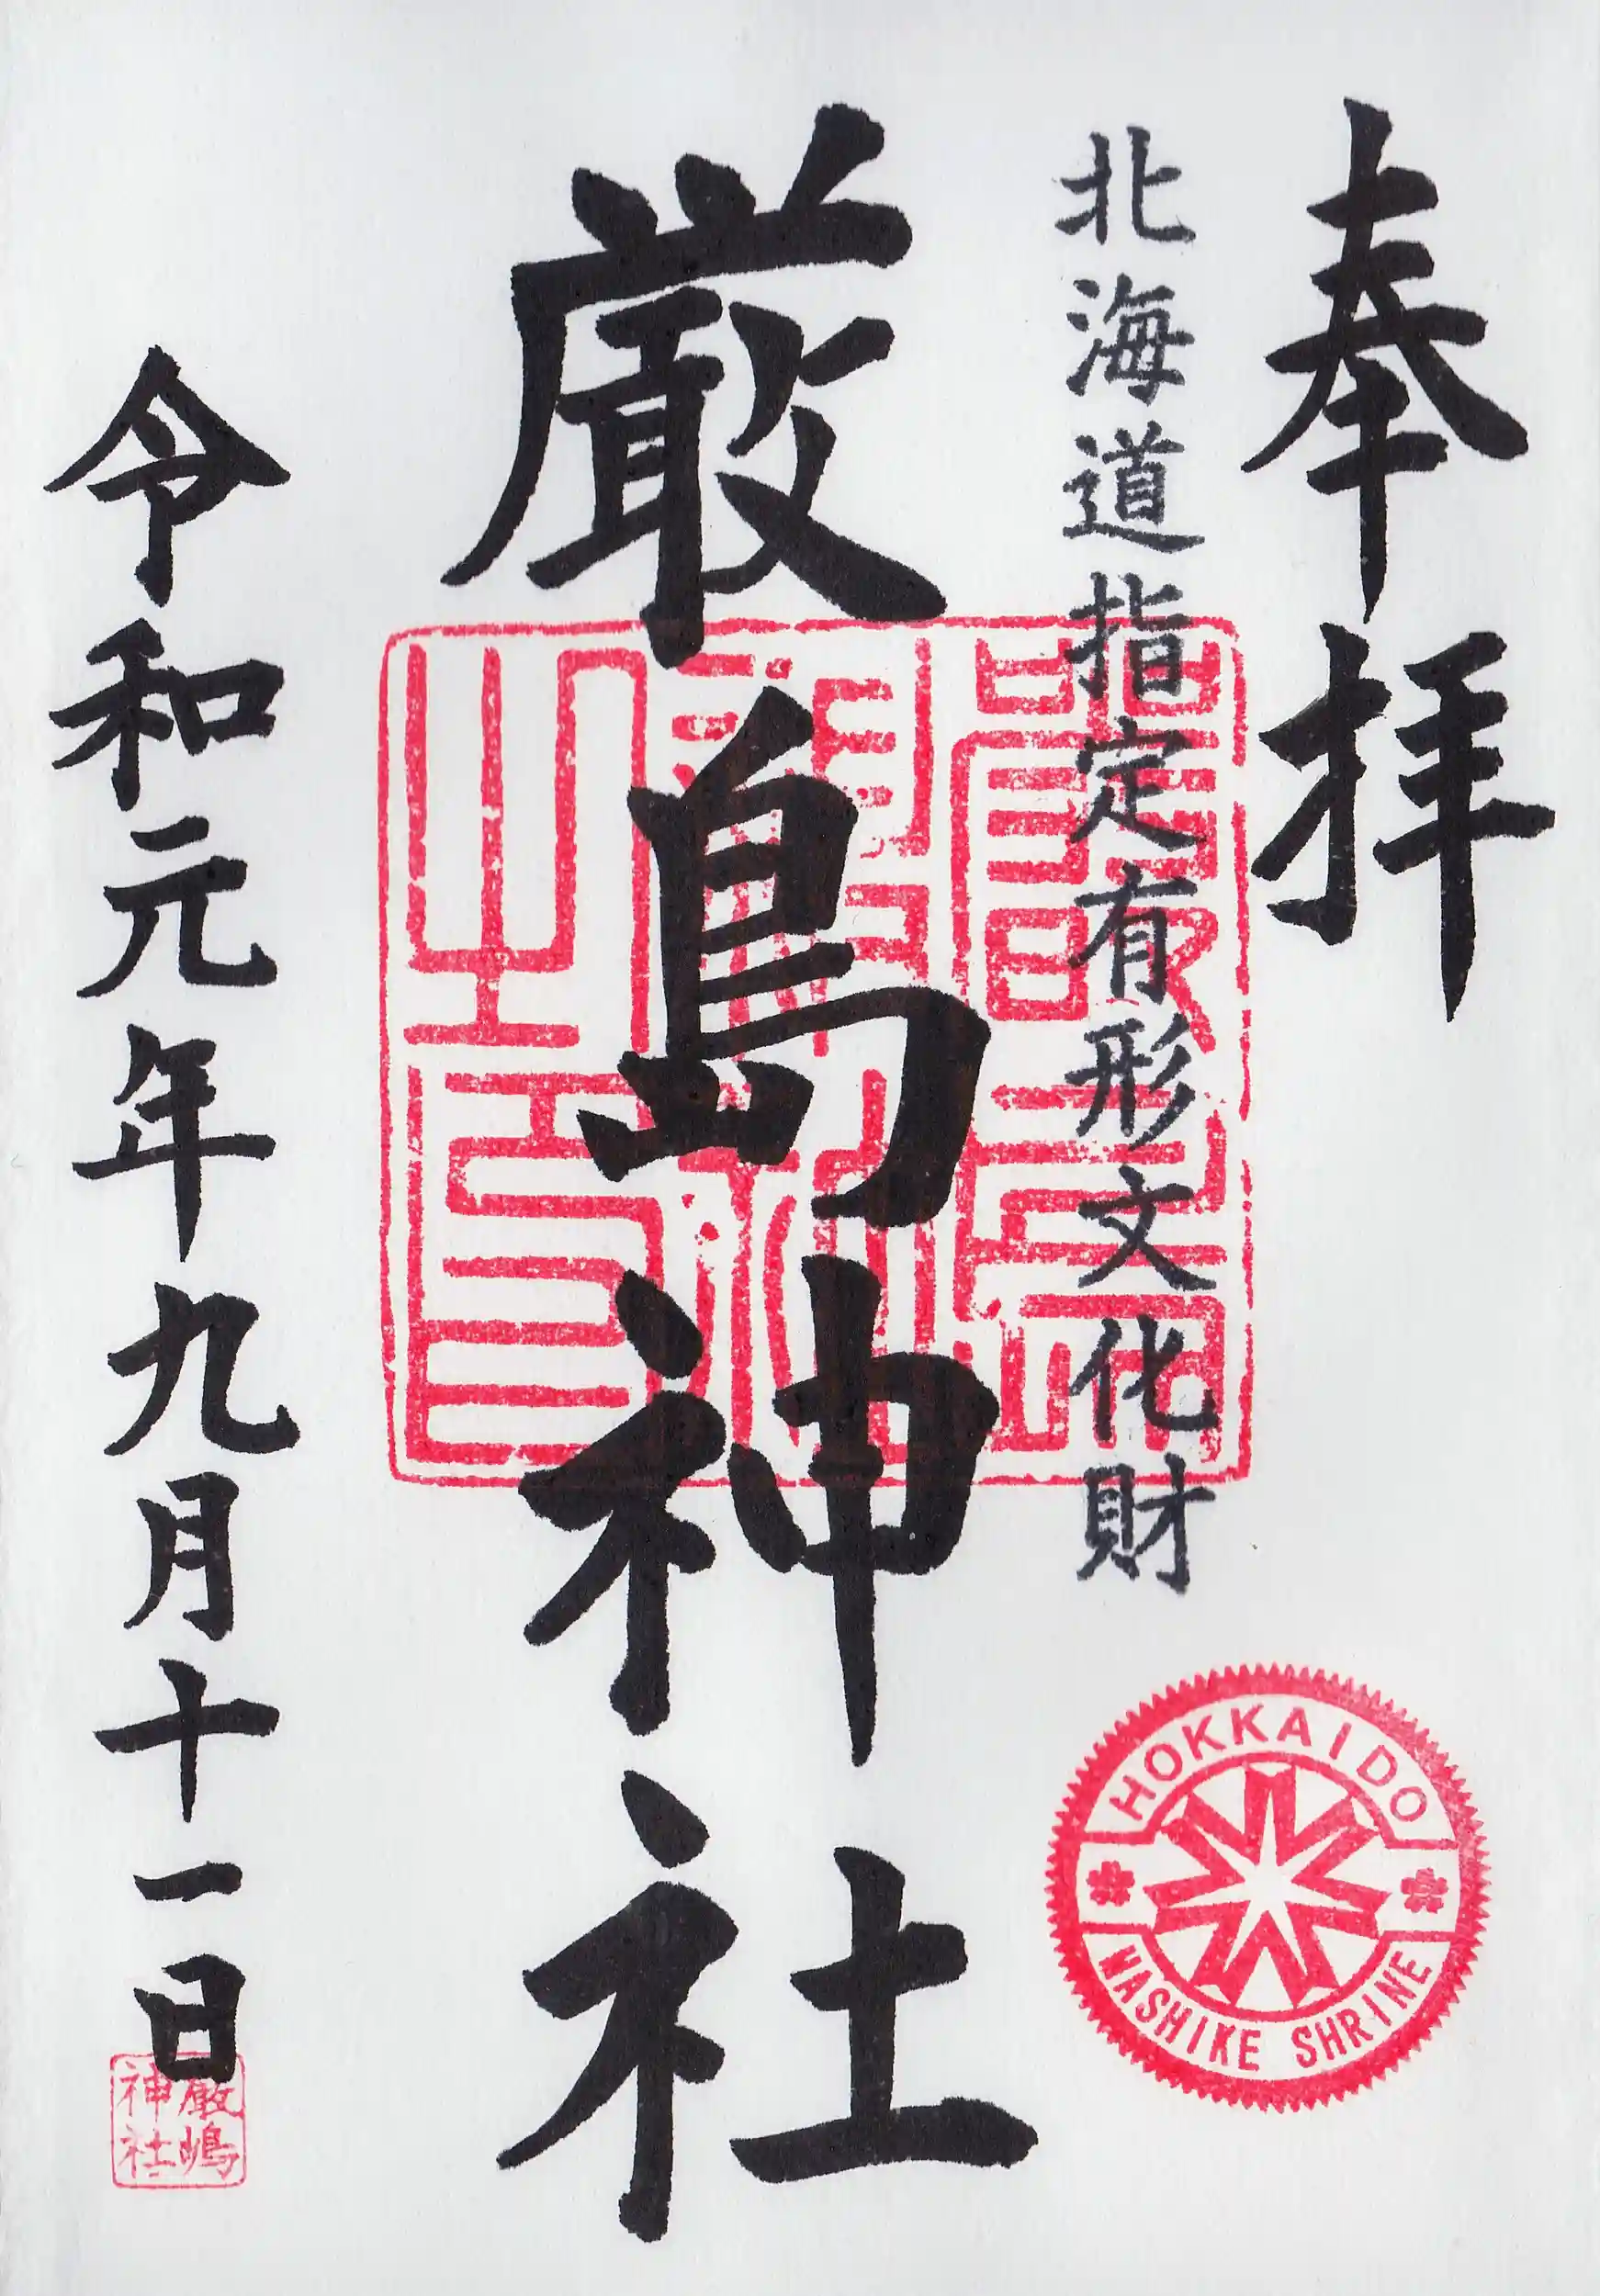 奉拝
北海道指定有形文化財
厳島神社
令和元年九月十一日
HOKKAIDO
MASHIKE SHRINE
厳嶋
神社